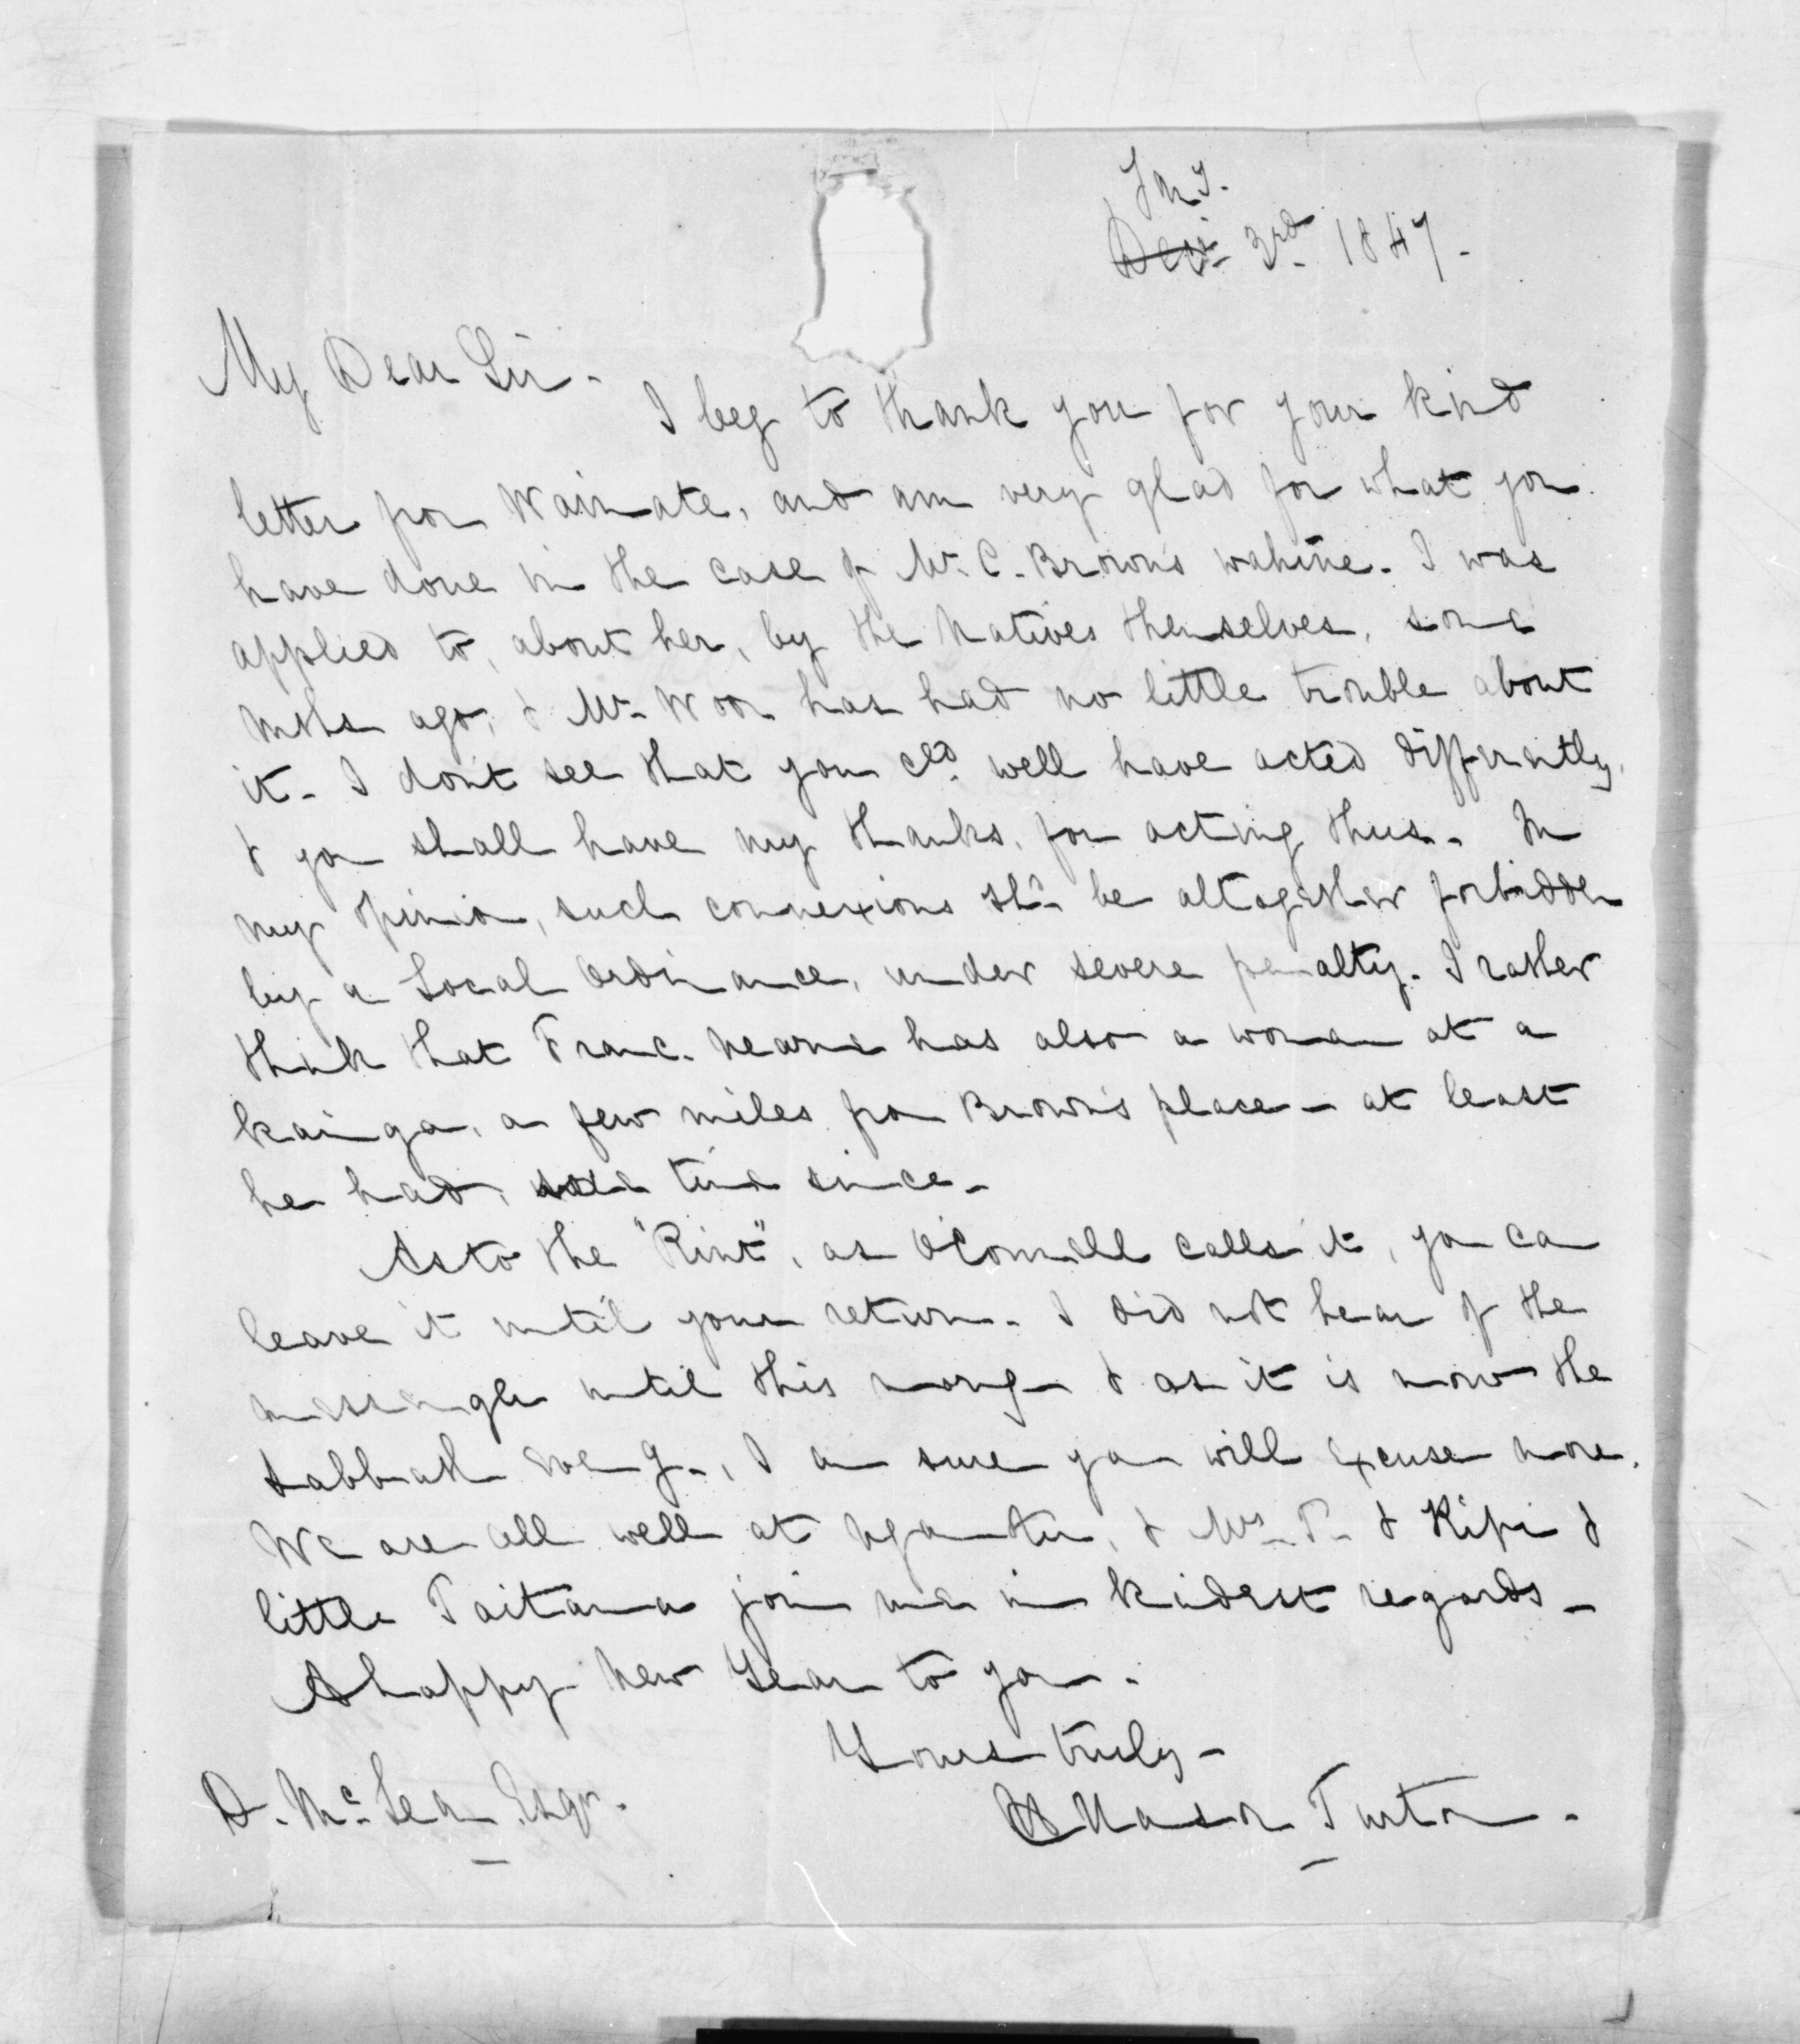 Jny.
Decr. 3rd. 1847.
My Dear Sir.
I beg to thank you for your kind
letter from Waimate, and am very glad for what you
have done in the case of Mr. C. Brown's wahine. I was
applied to, about her, by the Natives themselves, some
mths ago, & Mr. Woon has had no little trouble about
it. I don't see that you cld. well have acted differently,
& you shall have my thanks, for acting thus. In
my opinion, such connexions shd. be altogether forbidden
by a Local Ordinance, under severe penalty. I rather
think that Franc. has also a woman at a
kainga, a few miles from Brown's place - at least
he had, some time since.
As to the "Rint", as O'Connell calls it, you can
leave it until your return. I did not hear of the
messenger until this morng & as it is now the
Sabbath eveng., I am sure you will excuse more.
We are all well at Ngamotu, & Mrs. T. & Kipi &
little Taitana join me in kindest regards -
A happy New Year to you.
Yours truly -
H Hanson Turton.
D. McLean Esqr.